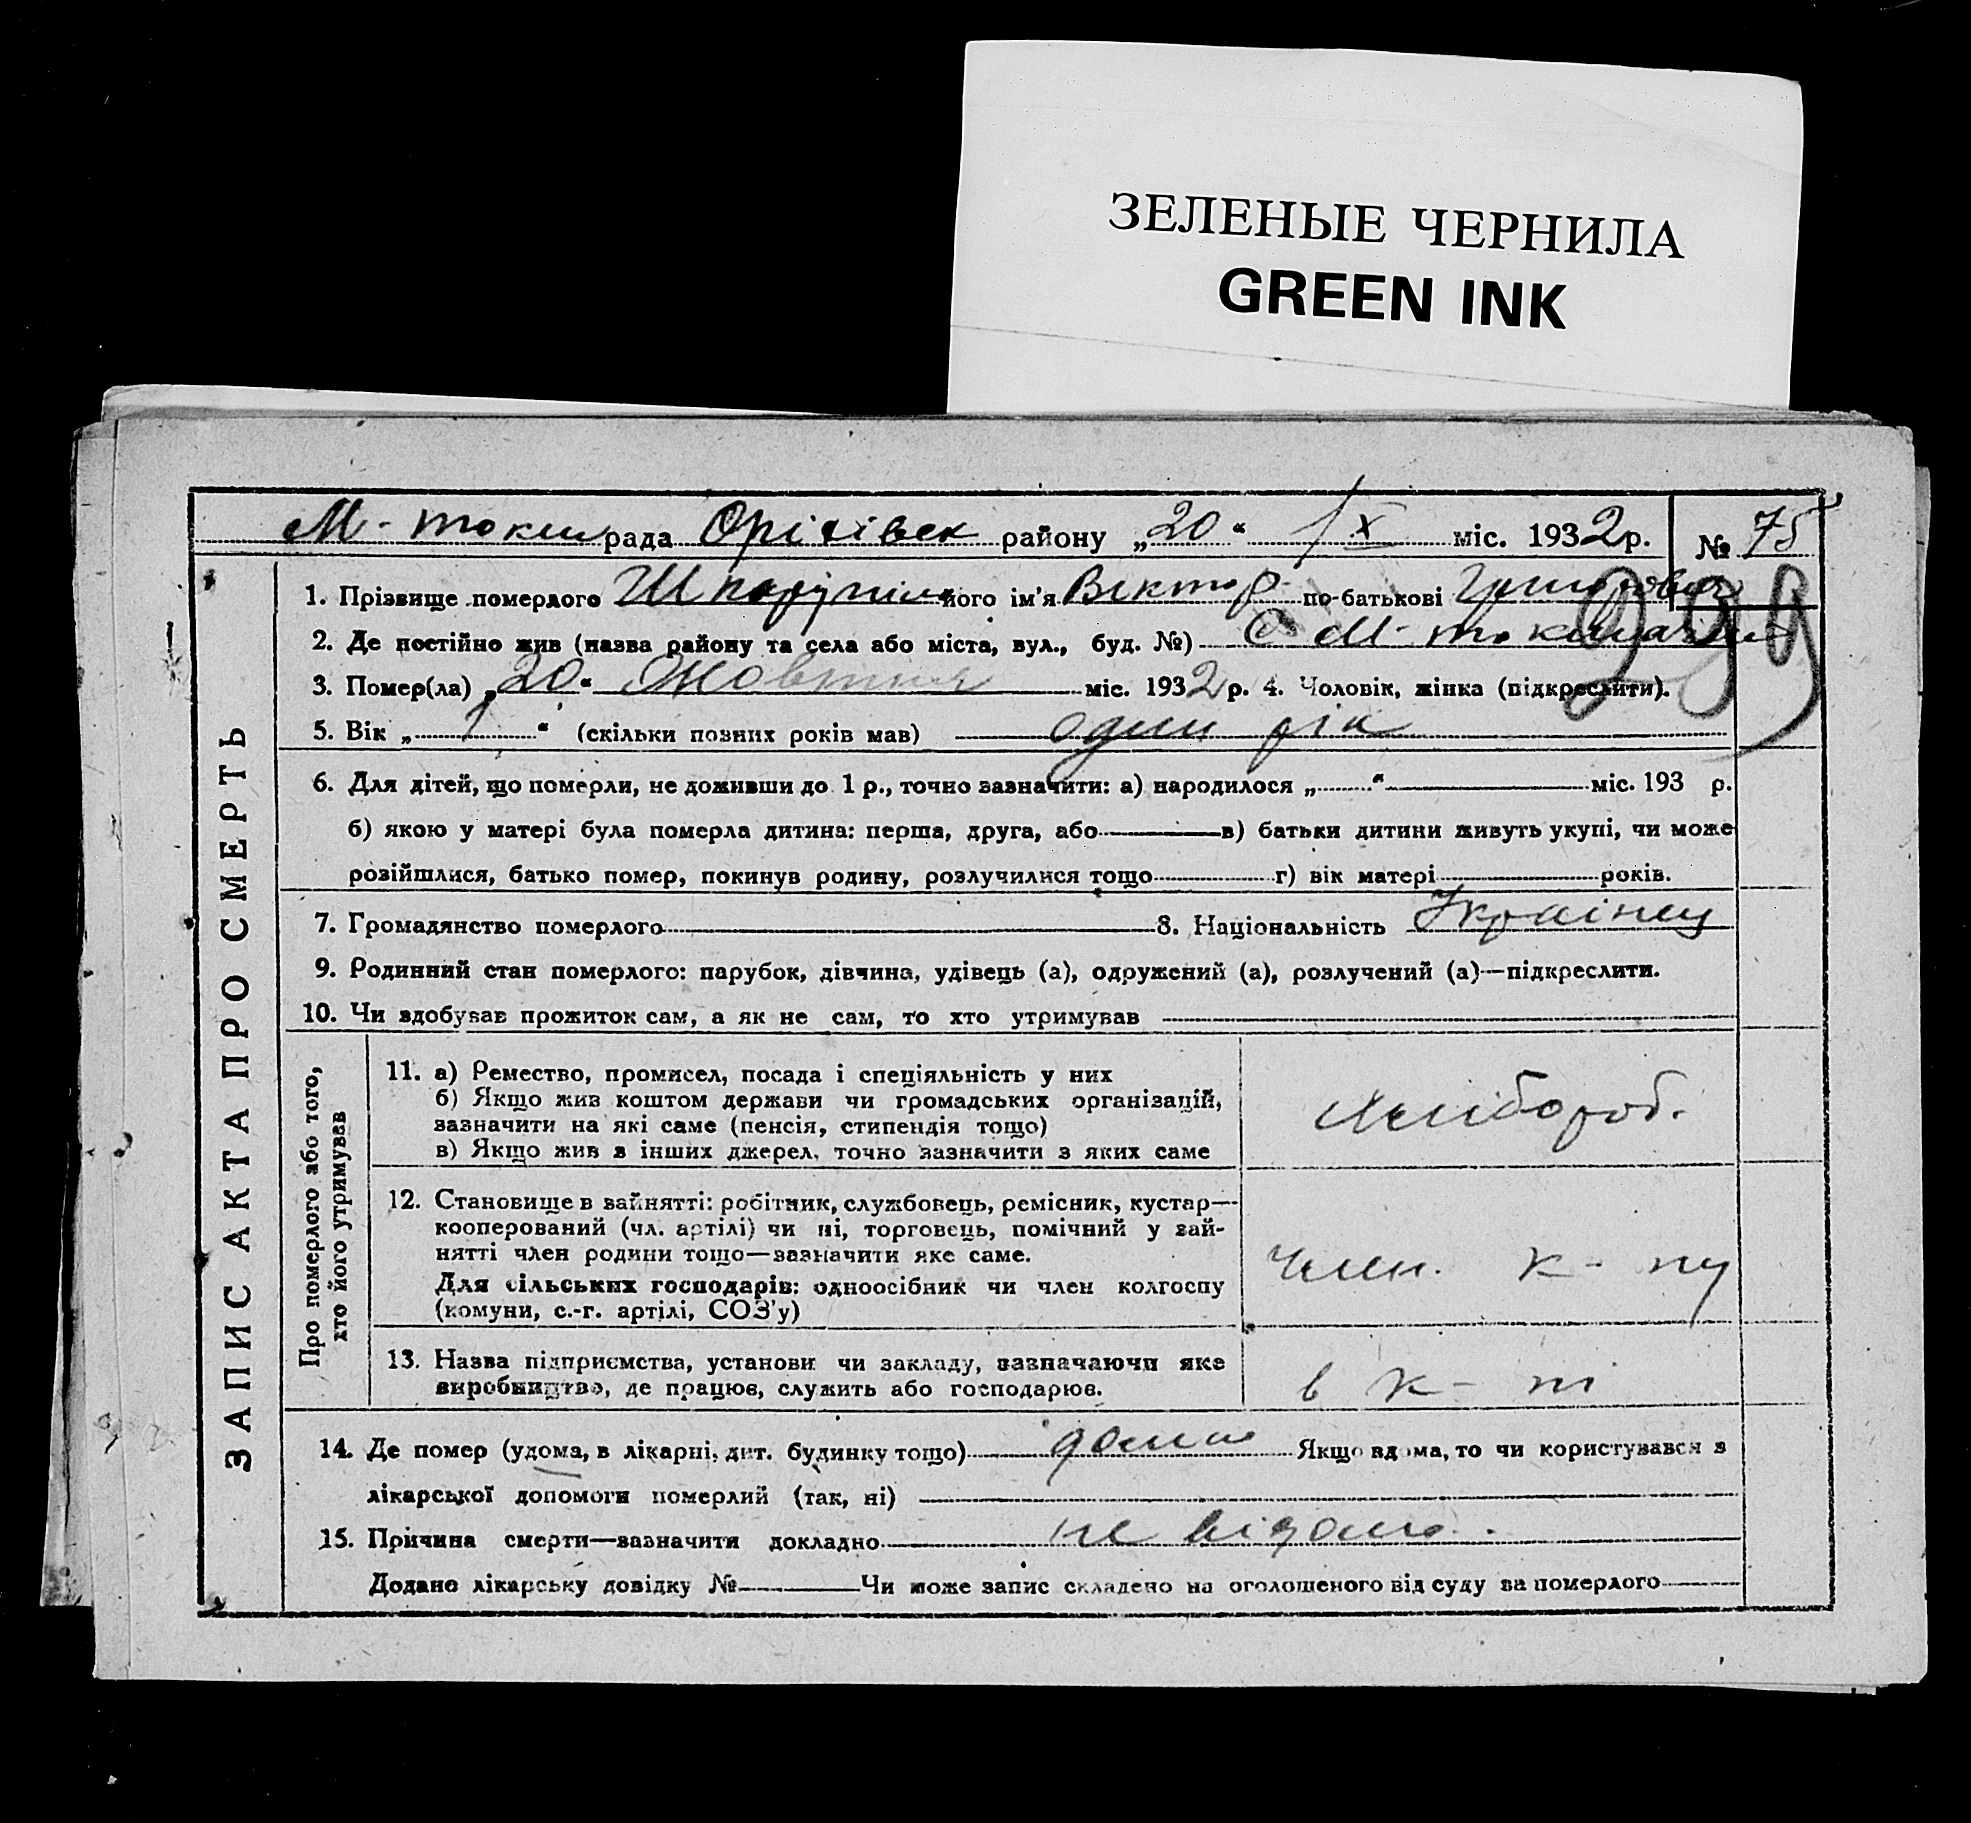 ЗЕЛЕНЫЕ ЧЕРНИЛА
GREEN INK
М-токм рада Оріхівськ району „20“ IX міс. 1932 р. № 75
299
1. Прізвище померлого його ім'я Віктор по-батькові Григорович
2. Де постійно жив (назва району та села або міста, вул., буд. №) с. М-токмачка
3. Помер(ла) „20“ Жовтня міс. 1932 р. 4. Чоловік, жінка (підкреслити).
5. Вік „1“ (скільки повних років мав) один рік
6. Для дітей, що померли, не доживши до 1 р., точно зазначити: а) народилося „ “ міс. 193 р.
б) якою у матері була померла дитина: перша, друга, або в) батьки дитини живуть укупі, чи може
розійшлися, батько помер, покинув родину, розлучилися тощо г) вік матері років.
7. Громадянство померлого 8. Національність Українец
9. Родинний стан померлого: парубок, дівчина, удівець (а), одружений (а), розлучений (а)—підкреслити.
10. Чи здобував прожиток сам, а як не сам, то хто утримував
ЗАПИС АКТА ПРО СМЕРТЬ
Про померлого або того,
хто його утримував
11. а) Ремество, промисел, посада і спеціяльність у них
б) Якщо жив коштом держави чи громадських організацій,
зазначити на які саме (пенсія, стипендія тощо)
в) Якщо жив з інших джерел, точно зазначити з яких саме
хлібороб.
12. Становище в занятті: робітник, службовець, ремісник, кустар—
кооперований (чл. артілі) чи ні, торговець, помічний у зай-
нятті член родини тощо—зазначити яке саме.
Для сільських господарів: одноосібник чи член колгоспу
(комуни, с.-г. артілі, СОЗ'у)
член. к-пу
13. Назва підприємства, установи чи закладу, зазначаючи яке
виробництво, де працює, служить або господарює.
в к-пі
14. Де помер (удома, в лікарні, дит. будинку тощо) дома Якщо вдома, то чи користувався з
лікарської допомоги померлий (так, ні)
15. Причина смерти—зазначити докладно не відомо.
Додано лікарську довідку № Чи може запис складено на оголошеного від суду за померлого